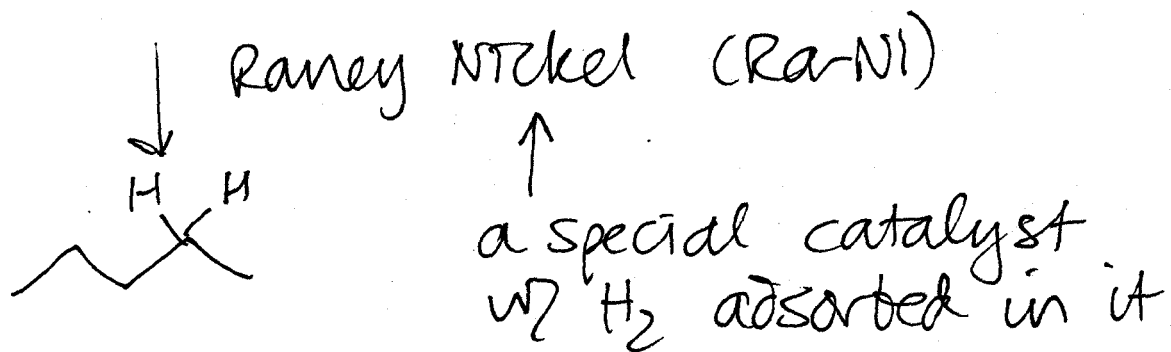 Raney Nickel (Ra-Ni)
H H
a special catalyst
w/ H₂ adsorbed in it